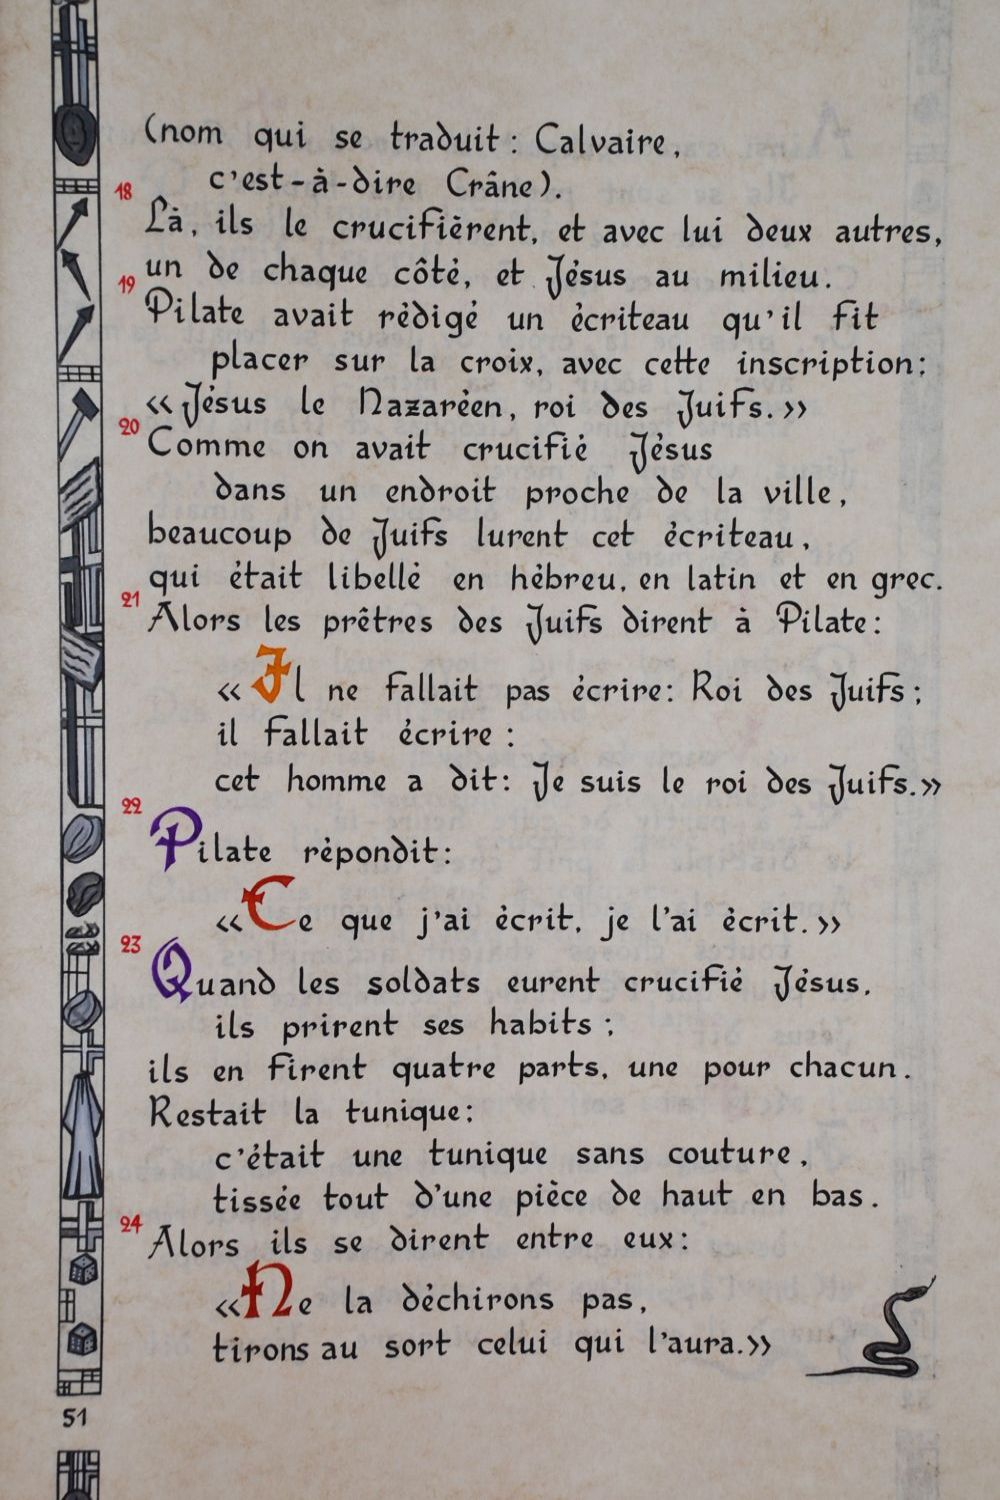 (nom qui se traduit : Calvaire,
c'est-à-dire Crâne).
18
Là, ils le crucifièrent, et avec lui deux autres,
un de chaque côté, et Jésus au milieu.
19
Pilate avait rédigé un écriteau qu'il fit
placer sur la croix, avec cette inscription:
«Jésus le Nazaréen, roi des Juifs.»
20
Comme on avait crucifié Jésus
dans un endroit proche de la ville,
beaucoup de Juifs lurent cet écriteau,
qui était libellé en hébreu, en latin et en grec.
21
Alors les prêtres des Juifs dirent à Pilate:
«Il ne fallait pas écrire: Roi des Juifs;
il fallait écrire :
cet homme a dit: Je suis le roi des Juifs.»
22
Pilate répondit:
«Ce que j'ai écrit, je l'ai écrit.»
23
Quand les soldats eurent crucifié Jésus,
ils prirent ses habits ;
ils en firent quatre parts, une pour chacun.
Restait la tunique:
c'était une tunique sans couture,
tissée tout d'une pièce de haut en bas.
24
Alors ils se dirent entre eux:
«Ne la déchirons pas,
tirons au sort celui qui l'aura.»
51